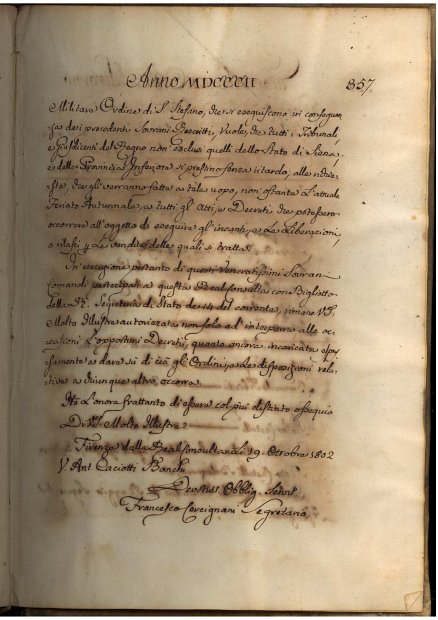 Anno MDCCCII
357.
Militare Ordine di S. Stefano, che si eseguiscono in conseguen=
za dei precedenti Sovrani Rescritti, Vuole, che tutti i Tribunali,
e Giusdicenti del Regno non esclusi quelli dello Stato di Siena,
e della Provincia Inferiore si prestino senza ritardo, alle richie=
ste, che gli verranno fatte a tale uopo, non ostante l'attuale
Feriato Autunnale, a tutti gli Atti, e Decreti che potessero
occorrere all'oggetto di eseguire gl'incanti, e le Liberazioni,
o rilasci p le vendite delle quali si tratta.
In esecuzione pertanto di questi Veneratissimi Sovrani
Comandi partecipati a questa Real Consulta con Biglietto
della R. Segreteria di Stato de 14 del corrente, rimane VS.
Molto Illustre autorizzata non solo ad interporre alle oc=
casioni l'opportuni Decreti, quanto ancora incaricata espres=
samente a dare su di ciò gli Ordini, e le disposizioni rela=
tive a chiunque altro occorra.
Ho l'onore frattanto di essere col più distinto ossequio
D. VS. Molto Illustre
Firenze dalla Real Consulta Li 19. Ottobre 1802
V. Ant. Caciotti Banchi
Devotiss Obblig. Servit.
Francesco Cercignani Segretario